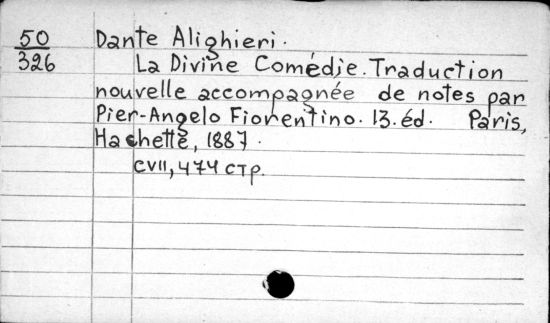 50
326
Dante Alighieri.
La Divine Comédie. Traduction
nouvelle accompagnée de notes par
Pier-Angelo Fiorentino. 13.éd. Paris,
Hachette, 1887.
CVII, 474 стр.